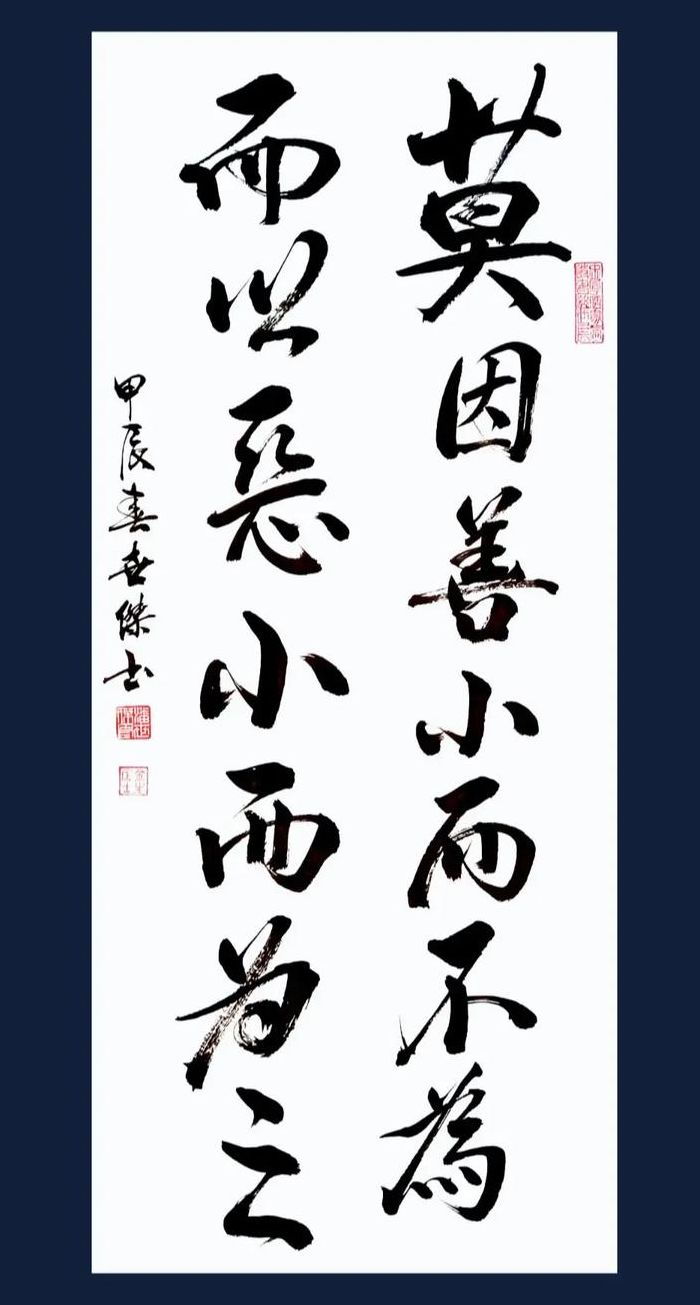 莫因善小而不為
而以惡小而為之
甲辰春世傑書